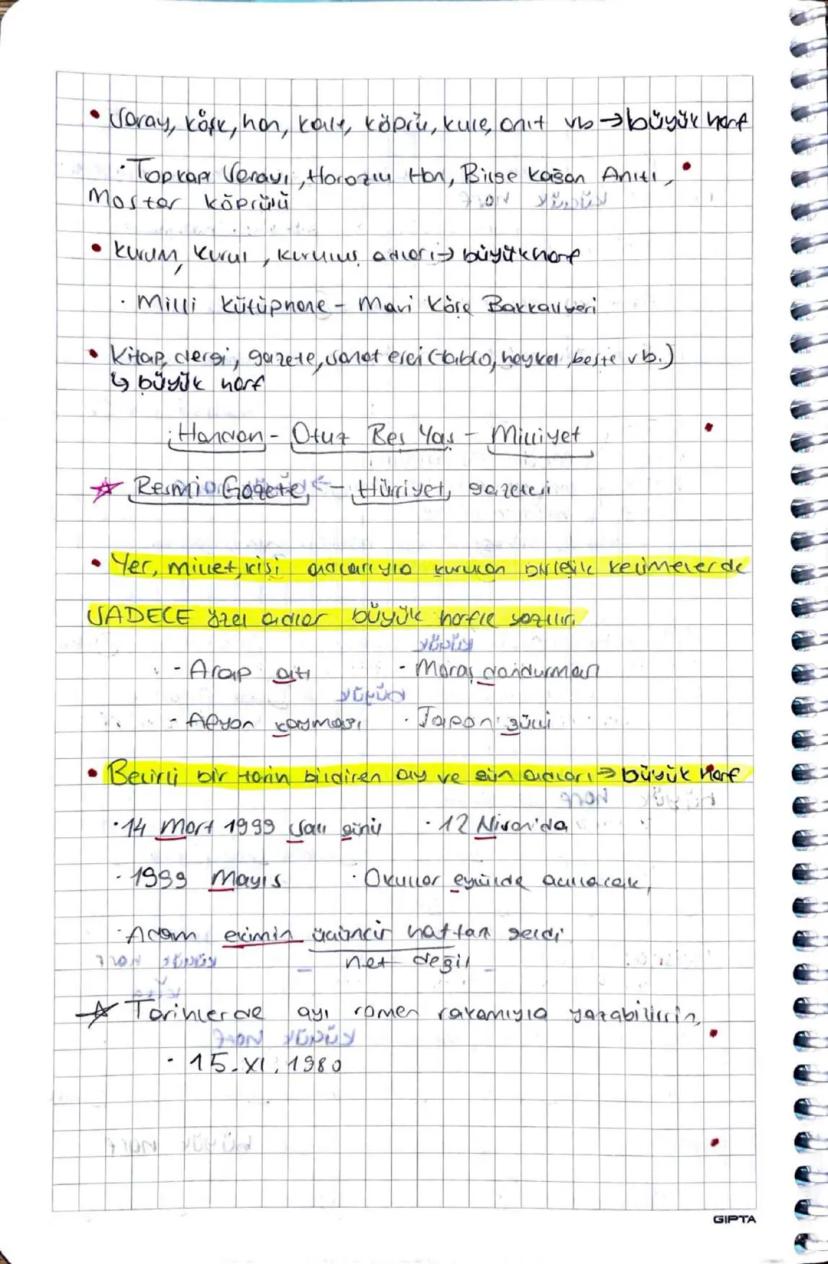 • Saray, köşk, han, kale, köprü, kule, anıt vb → büyük harf
· Topkapı Sarayı, Horozlu Han, Bilge Kağan Anıtı,
Mostar köprüsü
• Kurum, kurul, kuruluş adları → büyük harf
· Milli Kütüphane - Mavi Köşe Bakkaliyesi
• Kitap, dergi, gazete, sanat eseri (tablo, heykel, beste vb.)
↳ büyük harf
Handan - Otuz Beş Yaş - Milliyet
☆ Resmi Gazete, - Hürriyet, gazetesi
• Yer, millet, kişi adlarıyla kurulan birleşik kelimelerde
SADECE özel adlar büyük harfle yazılır.
- Arap atı - Maraş dondurması
- Afyon kaymağı · Japon gülü
• Belirli bir tarih bildiren ay ve gün adları → büyük harf
· 14 Mart 1999 Salı günü · 12 Nisan'da
· 1999 Mayıs · Okullar eylülde açılacak,
· Adam ekimin üçüncü haftası geldi
net değil
☆ Tarihlerde ayı romen rakamıyla yazabilirsin,
· 15.XI.1980
GIPTA